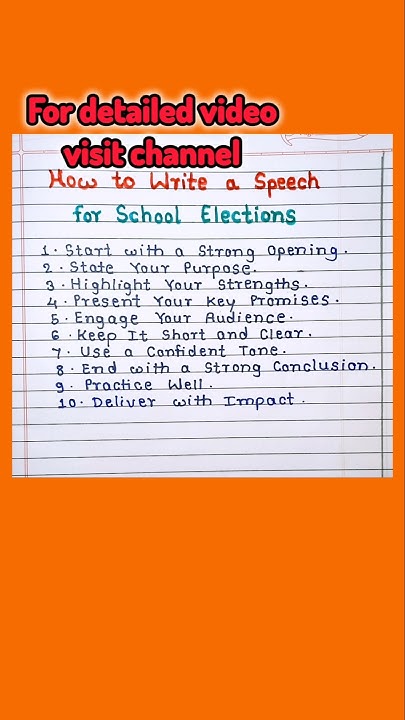 For detailed video
visit channel
How to Write a Speech
for School Elections
1. Start with a Strong Opening.
2. State Your Purpose.
3. Highlight Your Strengths.
4. Present Your Key Promises.
5. Engage Your Audience.
6. Keep It Short and Clear.
7. Use a Confident Tone.
8. End with a Strong Conclusion.
9. Practice Well.
10. Deliver with Impact.